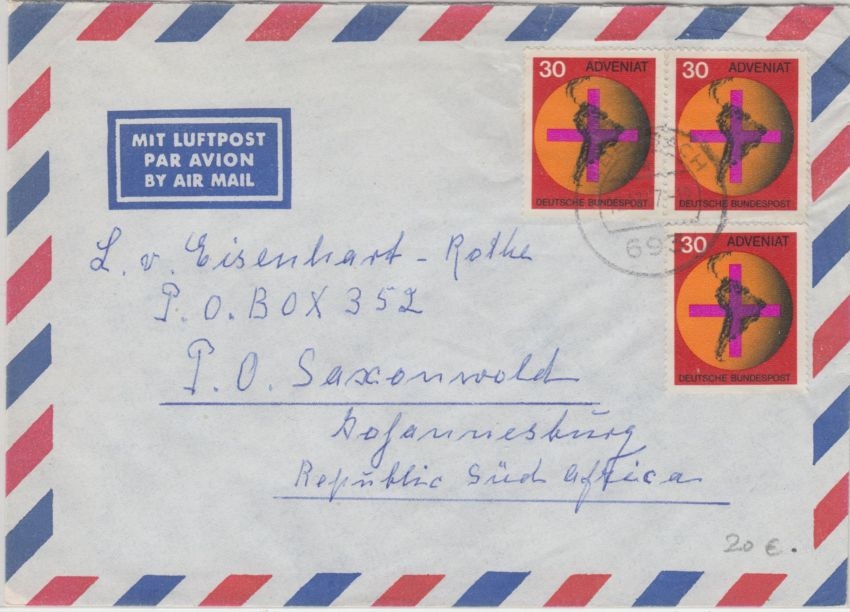 30 ADVENIAT
DEUTSCHE BUNDESPOST
30 ADVENIAT
DEUTSCHE BUNDESPOST
30 ADVENIAT
DEUTSCHE BUNDESPOST
MIT LUFTPOST
PAR AVION
BY AIR MAIL
L. v. Eisenhart-Rothe
P.O. BOX 352
P.O. Saxonwold
Johannesburg
Republic Süd Africa
20 €.